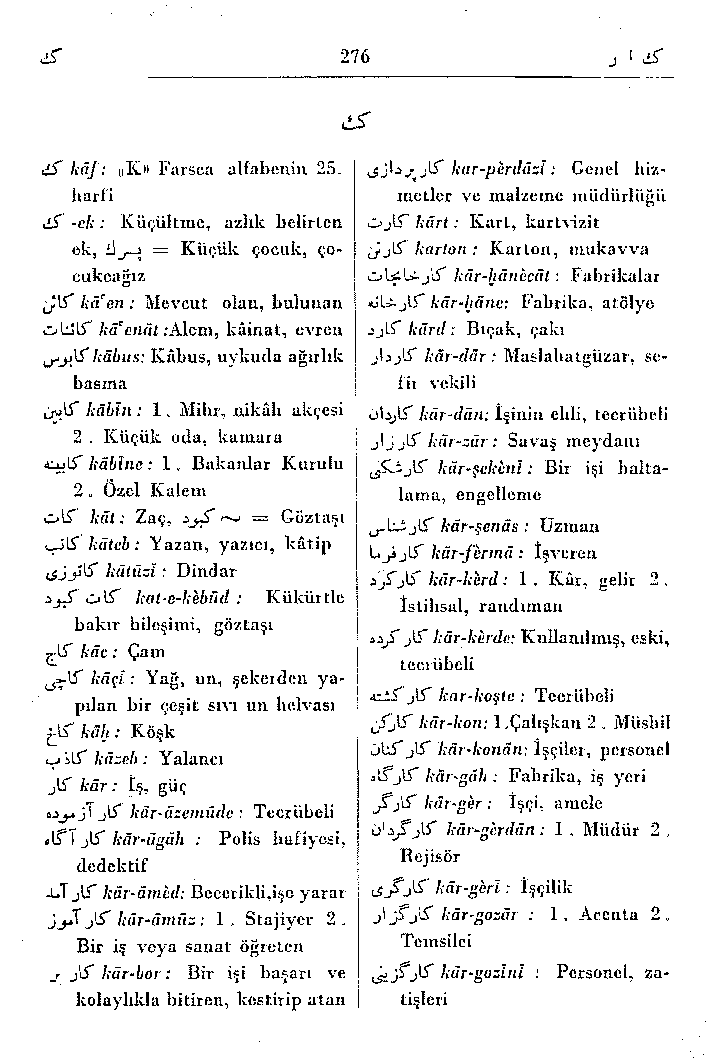 ك 276 ك ا ر
ك
ك kāf: «K» Farsca alfabenin 25.
harfi
ك -ek: Küçültme, azlık belirten
ek, پسرك = Küçük çocuk, ço-
cukcağız
كائن kā'en: Mevcut olan, bulunan
كائنات kā'enāt :Alem, kâinat, evren
كابوس kābus: Kâbus, uykuda ağırlık
basma
كابين kābīn: 1. Mihr, nikâh akçesi
2. Küçük oda, kamara
كابينه kābīne: 1. Bakanlar Kurulu
2. Özel Kalem
كات kāt: Zaç, كبود ~ = Göztaşı
كاتب kāteb: Yazan, yazıcı, kâtip
كاتوزى kātūzī: Dindar
كات كبود kat-e-kèbūd: Kükürtle
bakır bileşimi, göztaşı
كاج kāc: Çam
كاچى kāçī: Yağ, un, şekerden ya-
pılan bir çeşit sıvı un helvası
كاخ kāḫ: Köşk
كاذب kāzeb: Yalancı
كار kār: İş, güç
كار آزموده kār-āzemūde: Tecrübeli
كار آگاه kār-āgāh : Polis hafiyesi,
dedektif
كار آمد kār-āmèd: Becerikli,işe yarar
كار آموز kār-āmūz: 1. Stajiyer 2.
Bir iş veya sanat öğreten
كار بر kār-bor: Bir işi başarı ve
kolaylıkla bitiren, kestirip atan
كار پردازى kar-pèrdāzī: Genel hiz-
metler ve malzeme müdürlüğü
كارت kārt: Kart, kartvizit
كارتن karton: Karton, mukavva
كارخانجات kār-ḫānècāt: Fabrikalar
كارخانه kār-ḫāne: Fabrika, atölye
كارد kārd: Bıçak, çakı
كاردار kār-dār: Maslahatgüzar, se-
fir vekili
كاردان kār-dān: İşinin ehli, tecrübeli
كار زار kār-zār: Savaş meydanı
كارشكنى kār-şekènī: Bir işi balta-
lama, engelleme
كارشناس kār-şenās: Uzman
كارفرما kār-fèrmā: İşveren
كاركرد kār-kèrd: 1. Kâr, gelir 2.
İstihsal, randıman
كار كرده kār-kèrde: Kullanılmış, eski,
tecrübeli
كار كشته kar-koşte: Tecrübeli
كاركن kār-kon: 1.Çalışkan 2. Müshil
كار كنان kār-konān: İşçiler, personel
كارگاه kār-gāh: Fabrika, iş yeri
كارگر kār-gèr: İşçi, amele
كارگردان kār-gèrdān: 1. Müdür 2.
Rejisör
كارگرى kār-gèrī: İşçilik
كارگزار kār-gozār : 1. Acenta 2.
Temsilci
كارگزينى kār-gozīnī : Personel, za-
tişleri